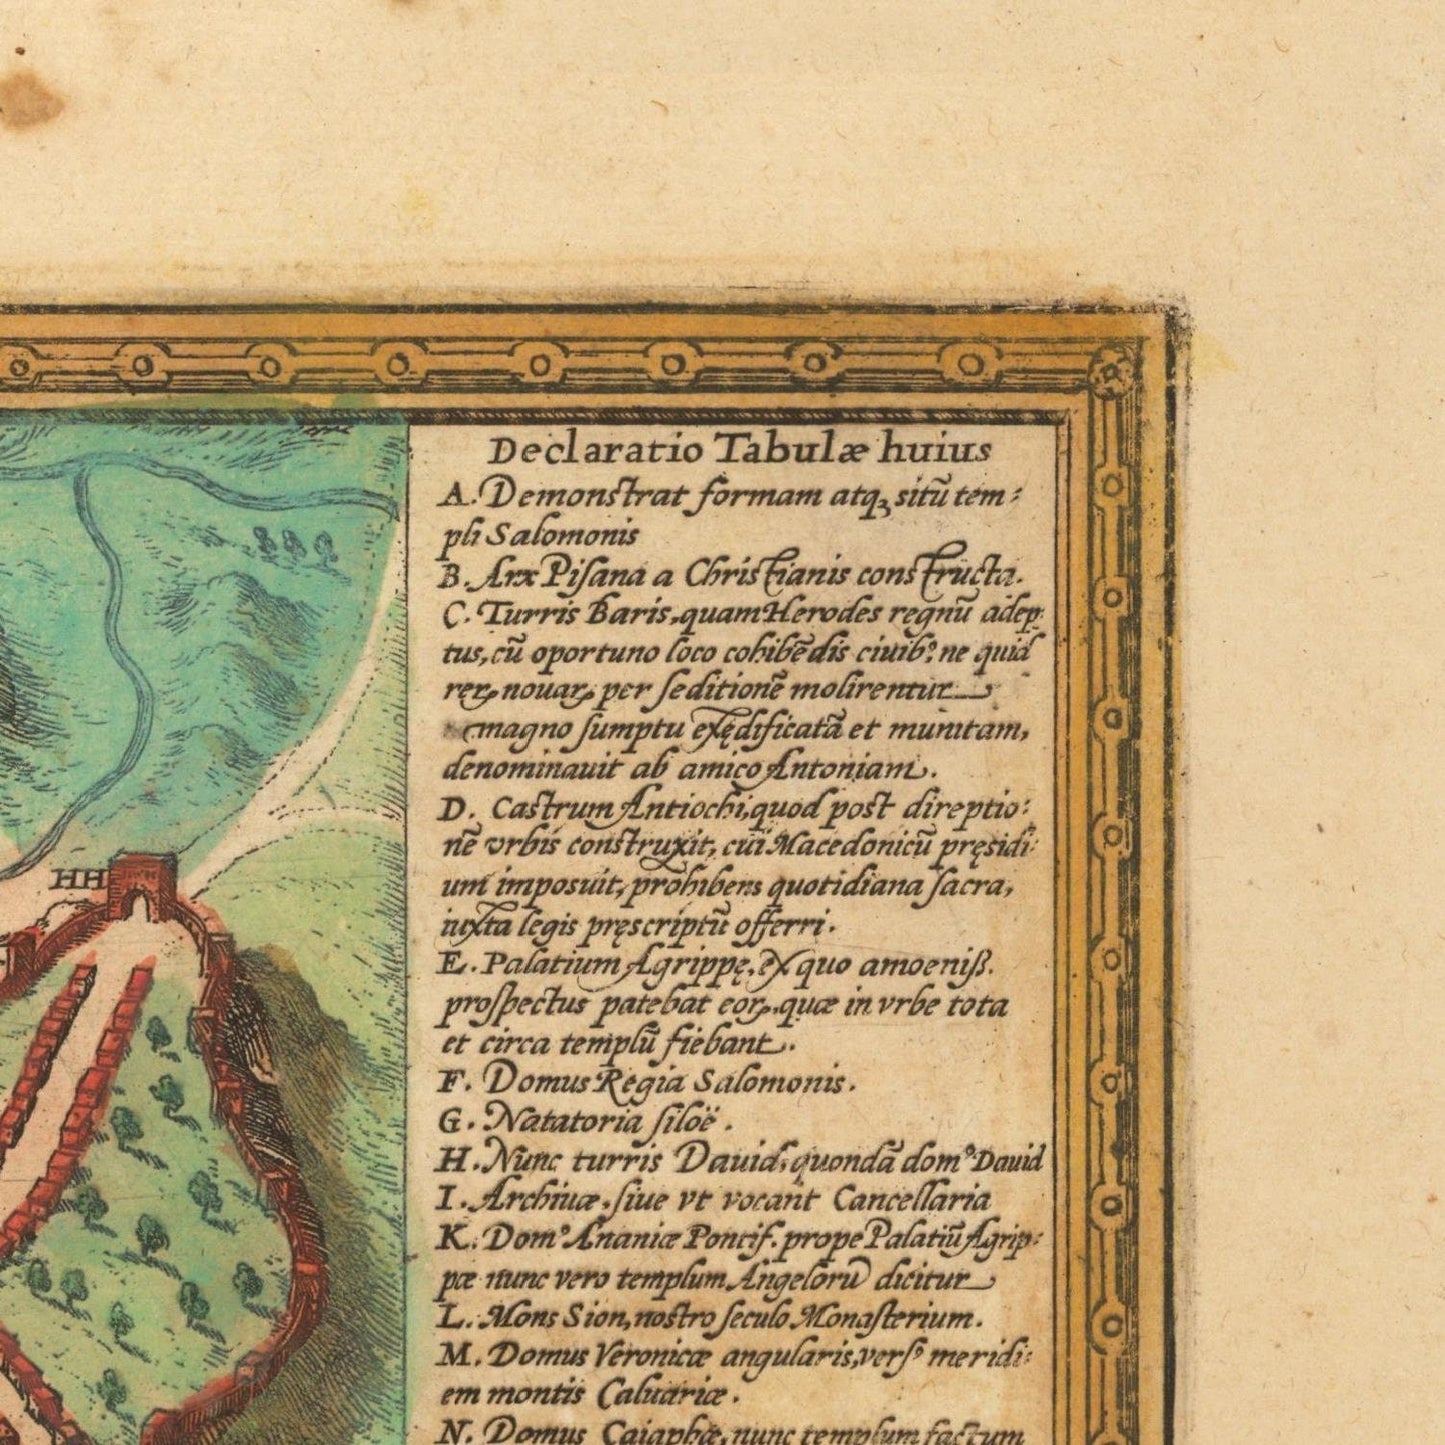 Declaratio Tabulæ huius
A. Demonstrat formam atqꝫ sitū tem:
pli Salomonis
B. Arx Pisana a Christianis constructa.
C. Turris Baris, quam Herodes regnū adep:
tus, cū oportuno loco cohibēdis ciuib9: ne quid
rerꝝ nouarꝝ per seditionē molirentur
magno sumptu exędificatā et munitam,
denominauit ab amico Antoniam.
D. Castrum Antiochi, quod post direptio:
nē vrbis construxit, cui Macedonicū pręsidi:
um imposuit, prohibens quotidiana sacra,
iuxta legis pręscriptū offerri.
E. Palatium Agrippę, ex quo amoeniß.
prospectus patebat eorꝝ, quæ in vrbe tota
et circa templū fiebant.
F. Domus Regia Salomonis.
G. Natatoria siloë.
H. Nunc turris Dauid, quondā dom9 Dauid
I. Archiuæ, siue vt vocant Cancellaria
K. Dom9 Ananiæ Pontif. prope Palatiū Agrip:
pæ nunc vero templum Angelorū dicitur
L. Mons Sion, nostro seculo Monasterium.
M. Domus Veronicæ angularis, vers9 meridi:
em montis Caluariæ.
N. Domus Caiaphæ, nunc templum factum
HH